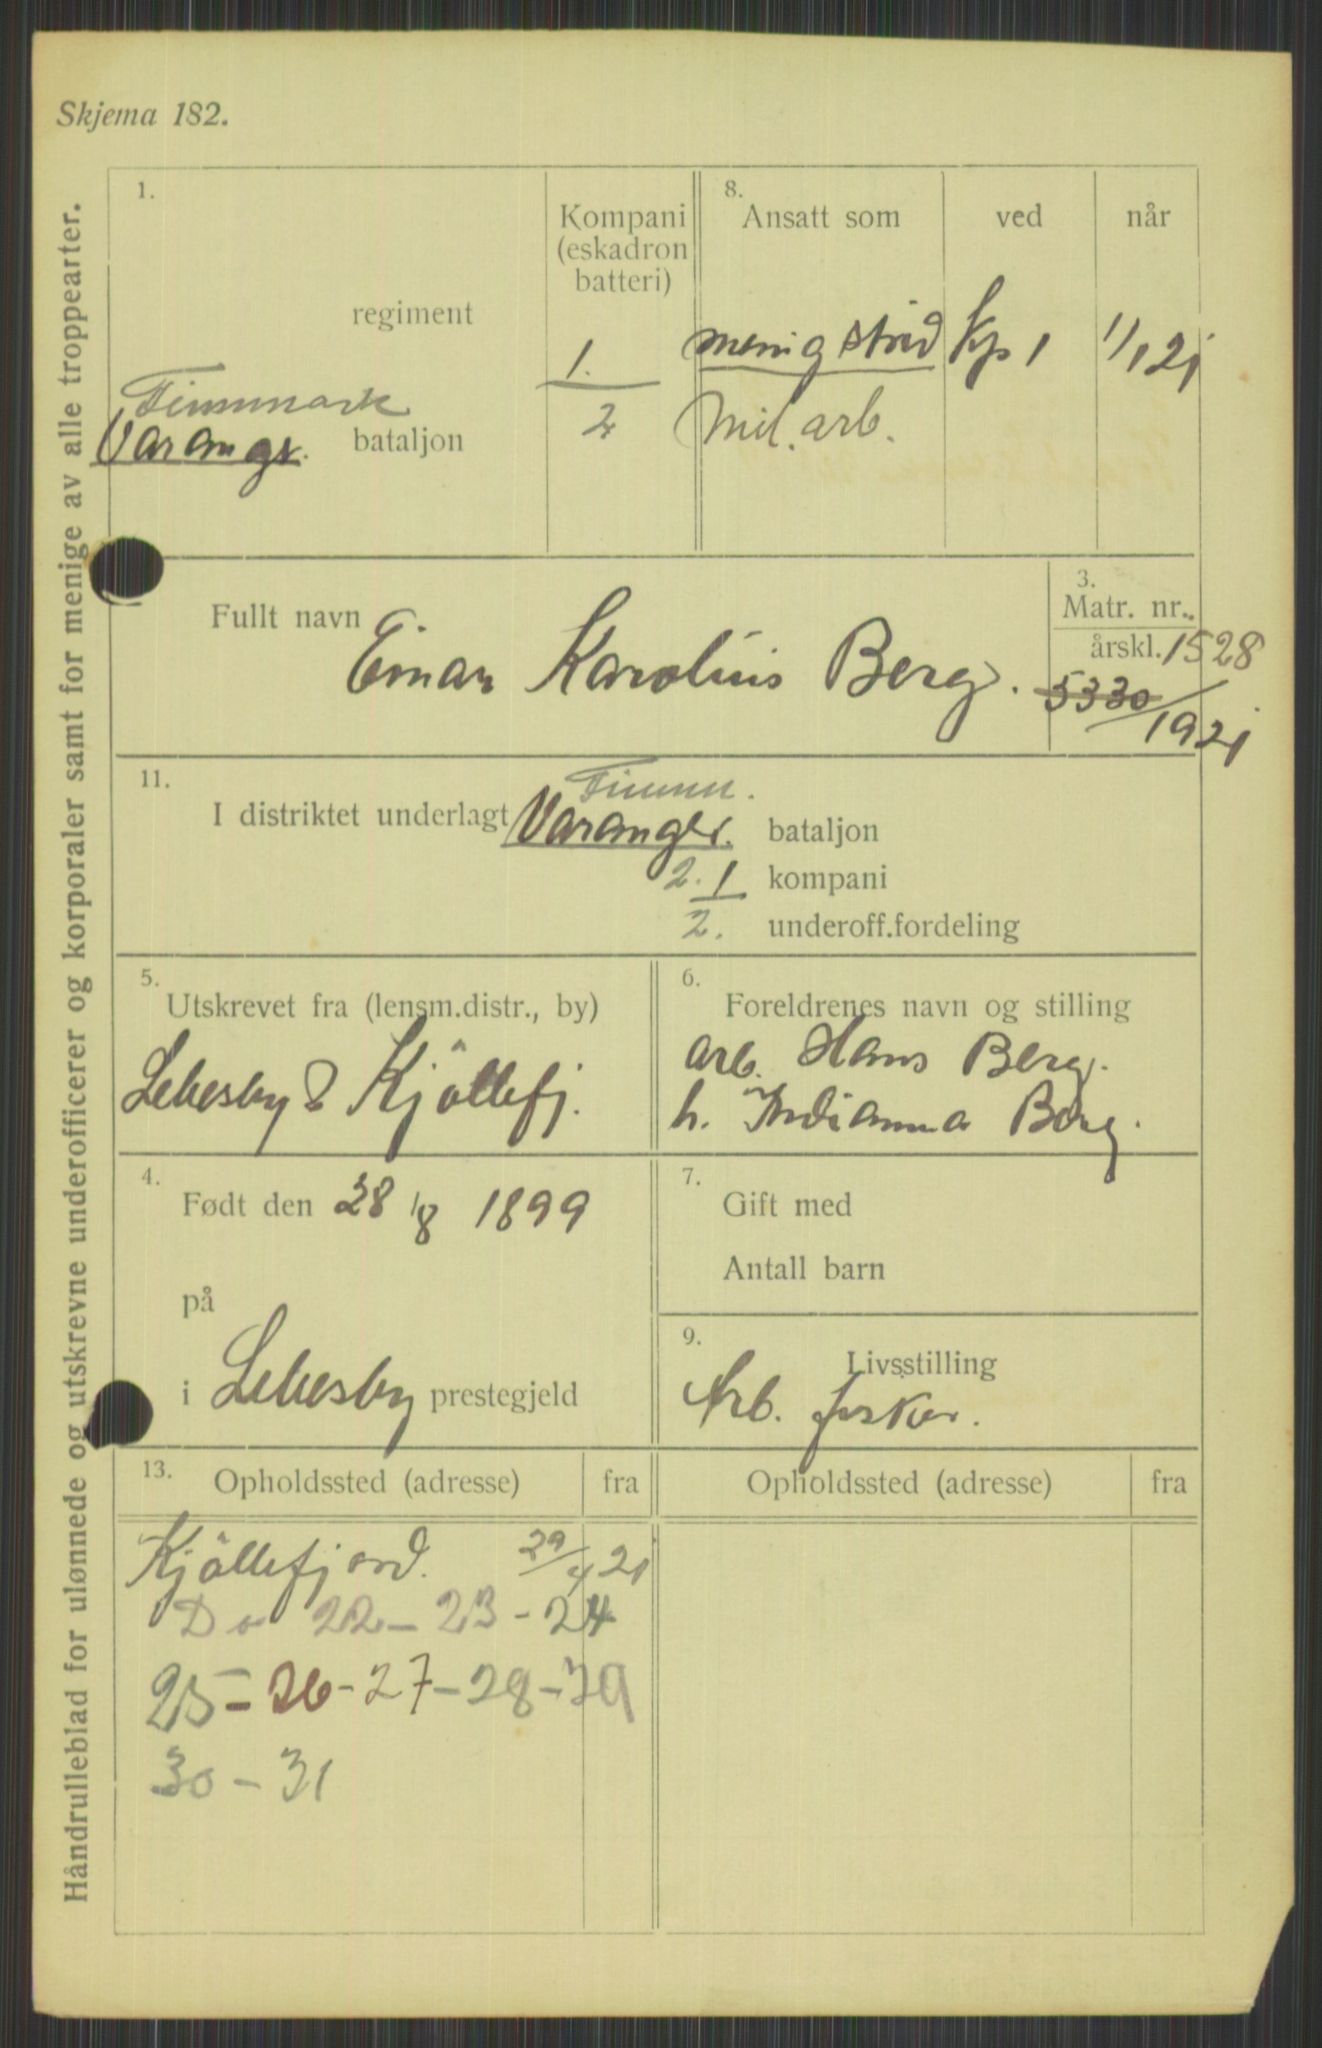 Skjema 182.
Håndrulleblad for ulønnede og utskrevne underofficerer og korporaler samt for menige av alle troppearter.
1.
regiment
Finnmark
Varangr. bataljon
Kompani
(eskadron
batteri)
1.
2
8.
Ansatt som ved når
menig strid Kp 1 1/1 21
Mil. arb.
Fullt navn Einar Karolius Berg.
3.
Matr. nr.
årskl. 1528
5330
1921
11.
Finnm.
I distriktet underlagt Varanger. bataljon
2. 1 kompani
2. underoff.fordeling
5.
Utskrevet fra (lensm.distr., by)
Lebesby & Kjöllefj.
6.
Foreldrenes navn og stilling
arb. Hans Berg.
h. Indianna Berg.
4.
Født den 28/8 1899
på
i Lebesby prestegjeld
7.
Gift med
Antall barn
9.
Livsstilling
Arb. fisker.
13.
Opholdssted (adresse) fra Opholdssted (adresse) fra
Kjöllefjord. 29/4 21
Do 22 - 23 - 24
25 - 26 - 27 - 28 - 29
30 - 31